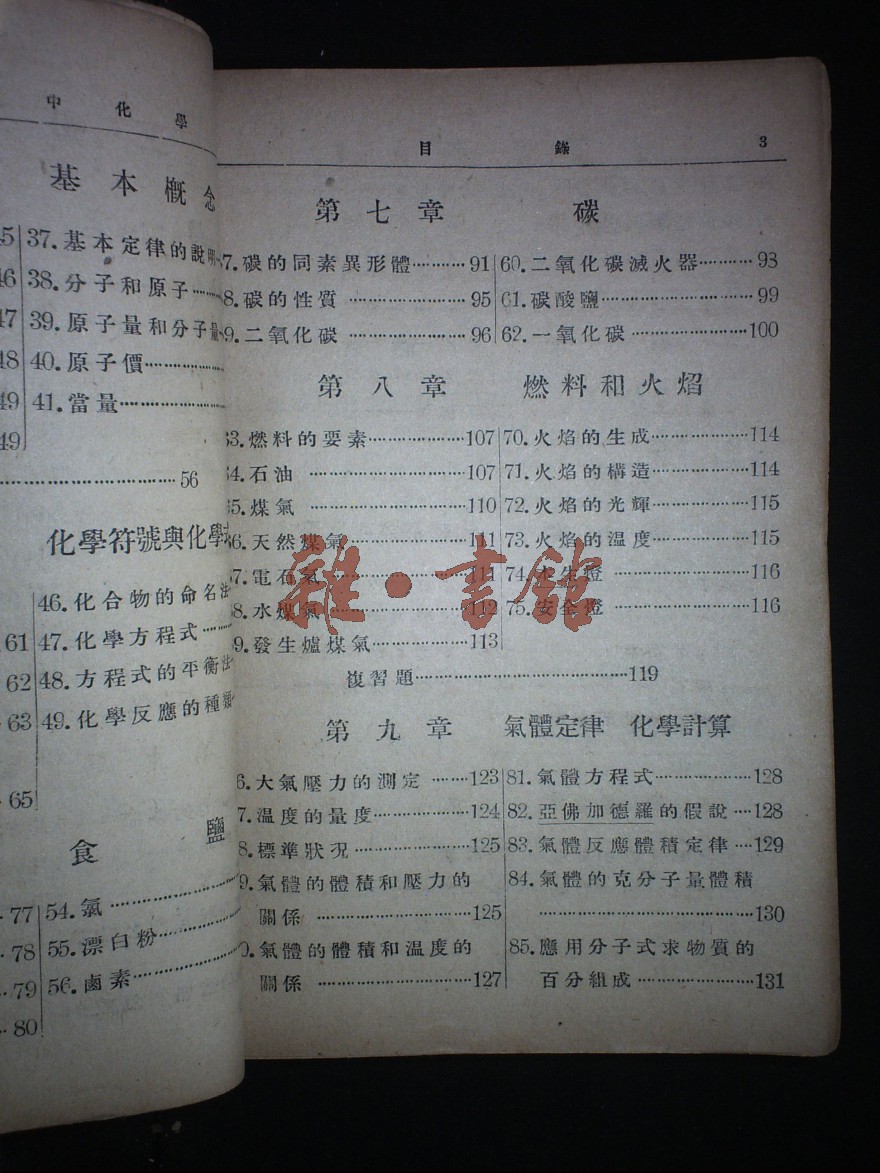 中化學
基本概念
45
37.基本定律的說明
46
38.分子和原子
47
39.原子量和分子量
48
40.原子價
49
41.當量
49
56
化學符號與化學
46.化合物的命名法
61
47.化學方程式
62
48.方程式的平衡法
63
49.化學反應的種類
65
食鹽
77
54.氯
78
55.漂白粉
79
56.鹵素
80
目錄 3
第七章 碳
7.碳的同素異形體 91
8.碳的性質 95
9.二氧化碳 96
60.二氧化碳滅火器 98
61.碳酸鹽 99
62.一氧化碳 100
第八章 燃料和火焰
63.燃料的要素 107
64.石油 107
65.煤氣 110
66.天然煤氣 111
67.電石氣 111
68.水煤氣 112
9.發生爐煤氣 113
70.火焰的生成 114
71.火焰的構造 114
72.火焰的光輝 115
73.火焰的温度 115
74.本生燈 116
75.安全燈 116
複習題 119
第九章 氣體定律 化學計算
6.大氣壓力的測定 123
7.温度的量度 124
8.標準狀況 125
9.氣體的體積和壓力的
關係 125
0.氣體的體積和温度的
關係 127
81.氣體方程式 128
82.亞佛加德羅的假說 128
83.氣體反應體積定律 129
84.氣體的克分子量體積
130
85.應用分子式求物質的
百分組成 131
雜·書館